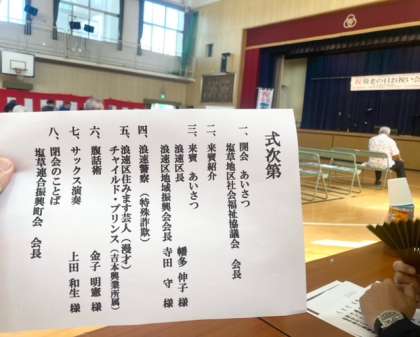 式次第
一、開会 あいさつ
塩草地区社会福祉協議会 会長
二、来賓紹介
三、来賓 あいさつ
浪速区長 幡多 伸子 様
浪速区地域振興会会長 寺田 守 様
四、浪速警察 (特殊詐欺)
五、浪速区住みます芸人 (漫才)
チャイルド・プリンス (吉本興業所属)
六、腹話術 金子 明憲 様
七、サックス演奏 上田 和生 様
八、閉会のことば
塩草連合振興町会 会長
敬老の日お祝い会